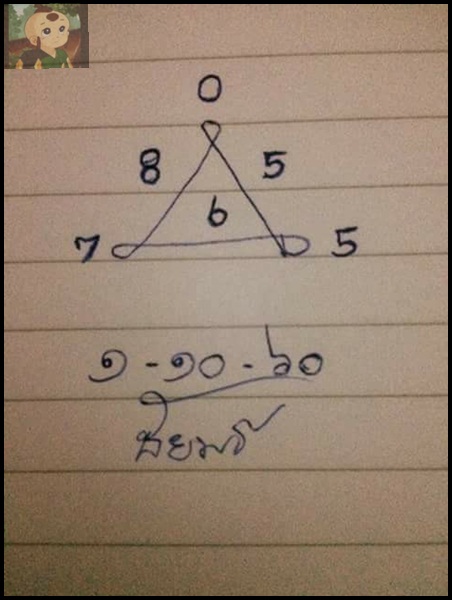 0
8 5
6
7 5
๑-๑๐-๖๐
ชัยมรี